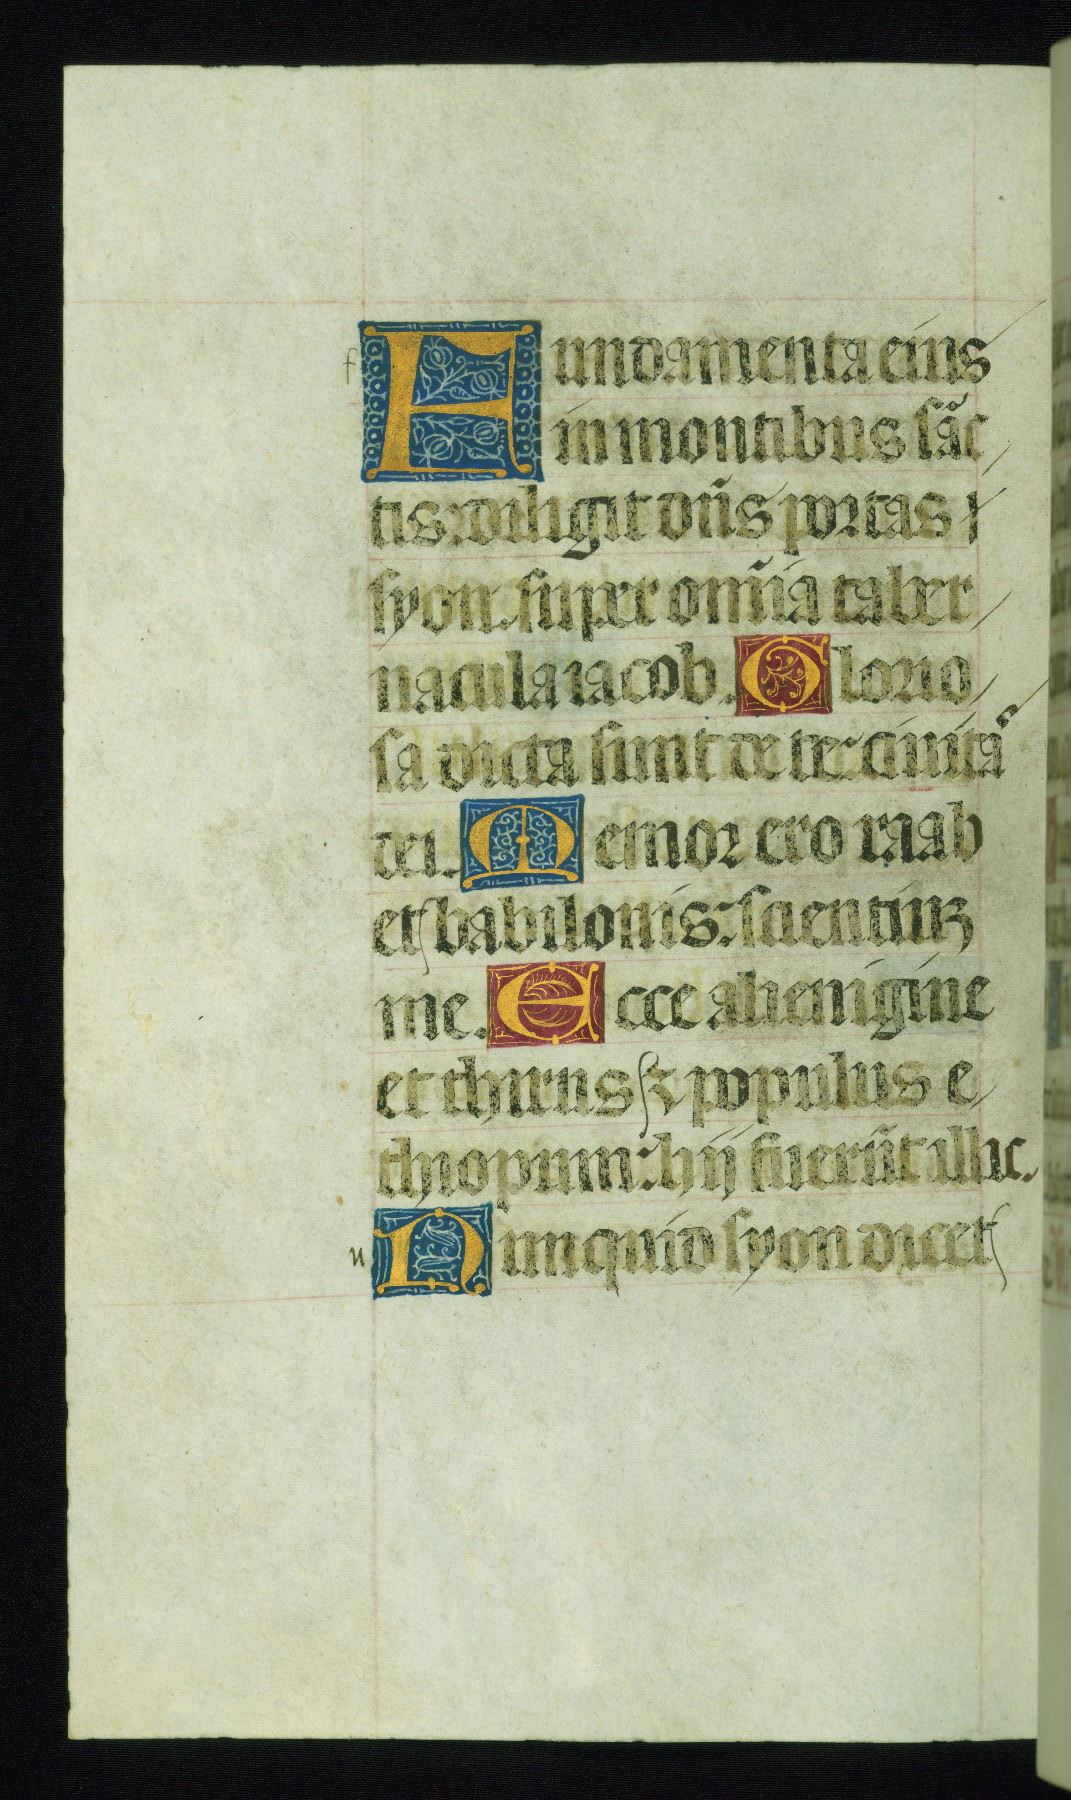 f Fundamenta eius
in montibus sãc
tis: diligit dñs portas
syon. super om̃ia taber
nacula iacob. Glorio
sa dicta sunt de te: ciuitã
dei. Memor ero raab
et babilonis: scientiuꝫ
me. Ecce alienigine
et thirus ⁊ populus e
thiopum: hij fuerũt illic.
n Nunquid syon dicet